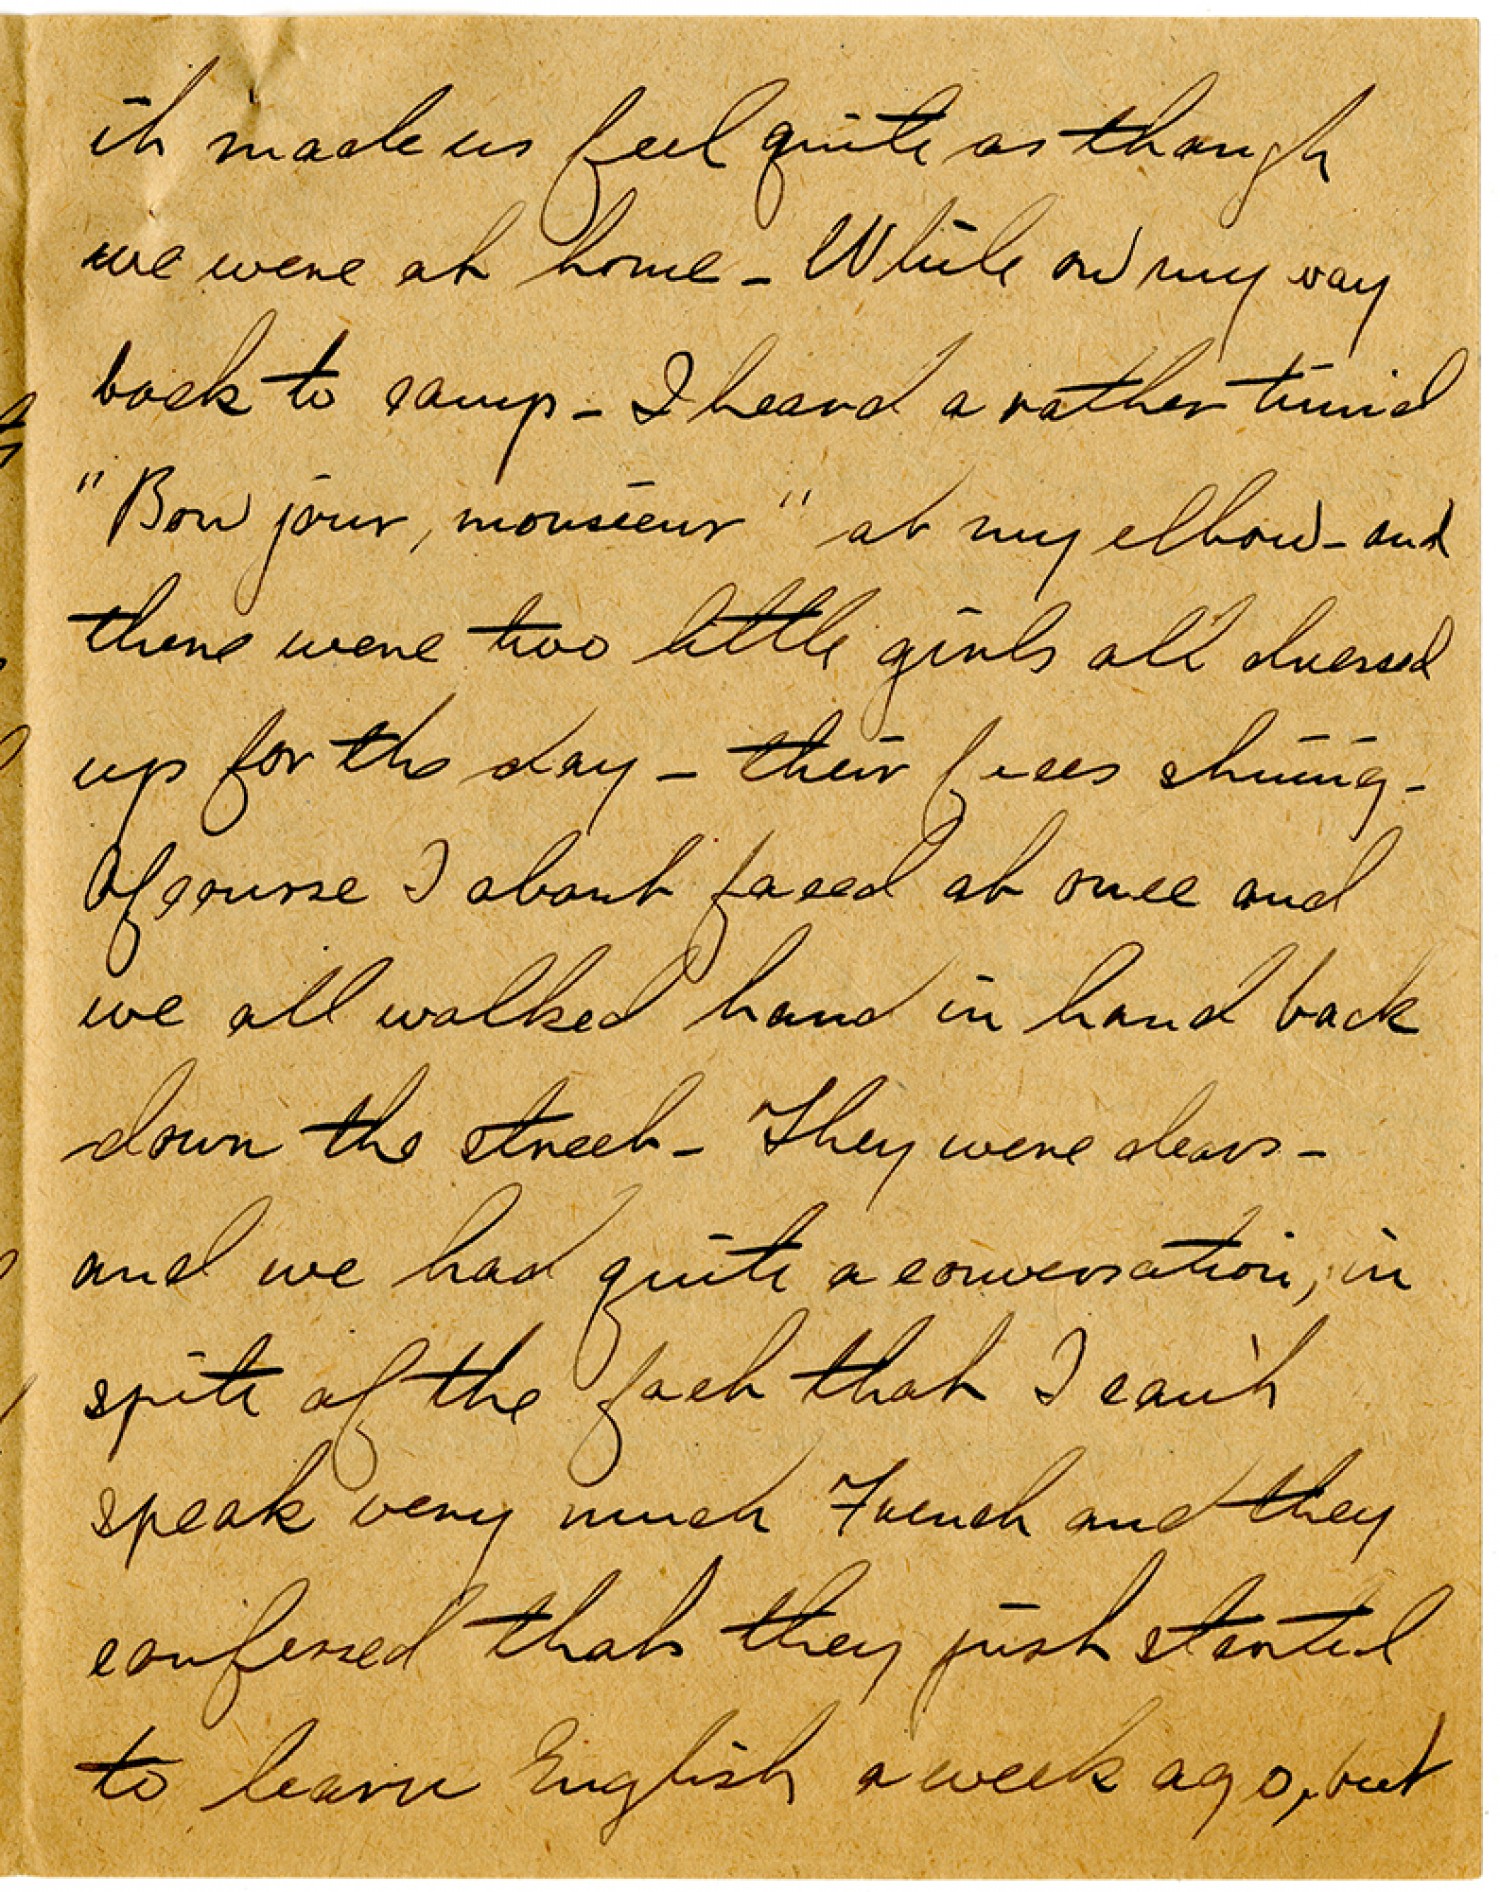 it made us feel quite as though
we were at home - While on my way
back to camp - I heard a rather timid
"Bon jour, monsieur" at my elbow - and
there were two little girls all dressed
up for the day - their faces shining -
Of course I about faced at once and
we all walked hand in hand back
down the street - They were dears -
and we had quite a conversation, in
spite of the fact that I can't
speak very much French and they
confessed that they just started
to learn English a week ago, but